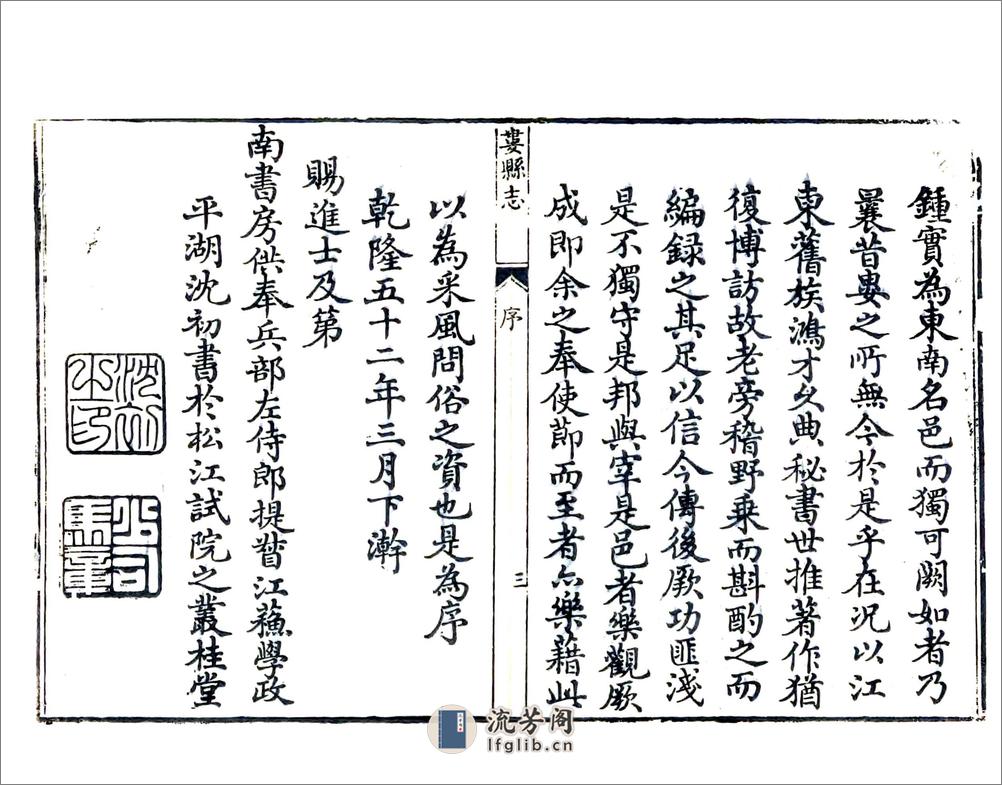 鍾實為東南名邑而獨可闕如者乃
曩昔婁之所無今於是乎在況以江
東舊族鴻才夂典秘書世推著作猶
復博訪故老旁稽野乗而斟酌之而
編録之其足以信今傳後厥功匪淺
是不獨守是邦與宰是邑者樂觀厥
成即余之奉使莭而至者亦樂藉此
婁縣志
序
三
以為采風問俗之資也是為序
乾隆五十二年三月下澣
賜進士及第
南書房供奉兵部左侍郎提督江蘓學政
平湖沈初書於松江試院之叢桂堂
沈初之印
流芳阁
lfglib.cn